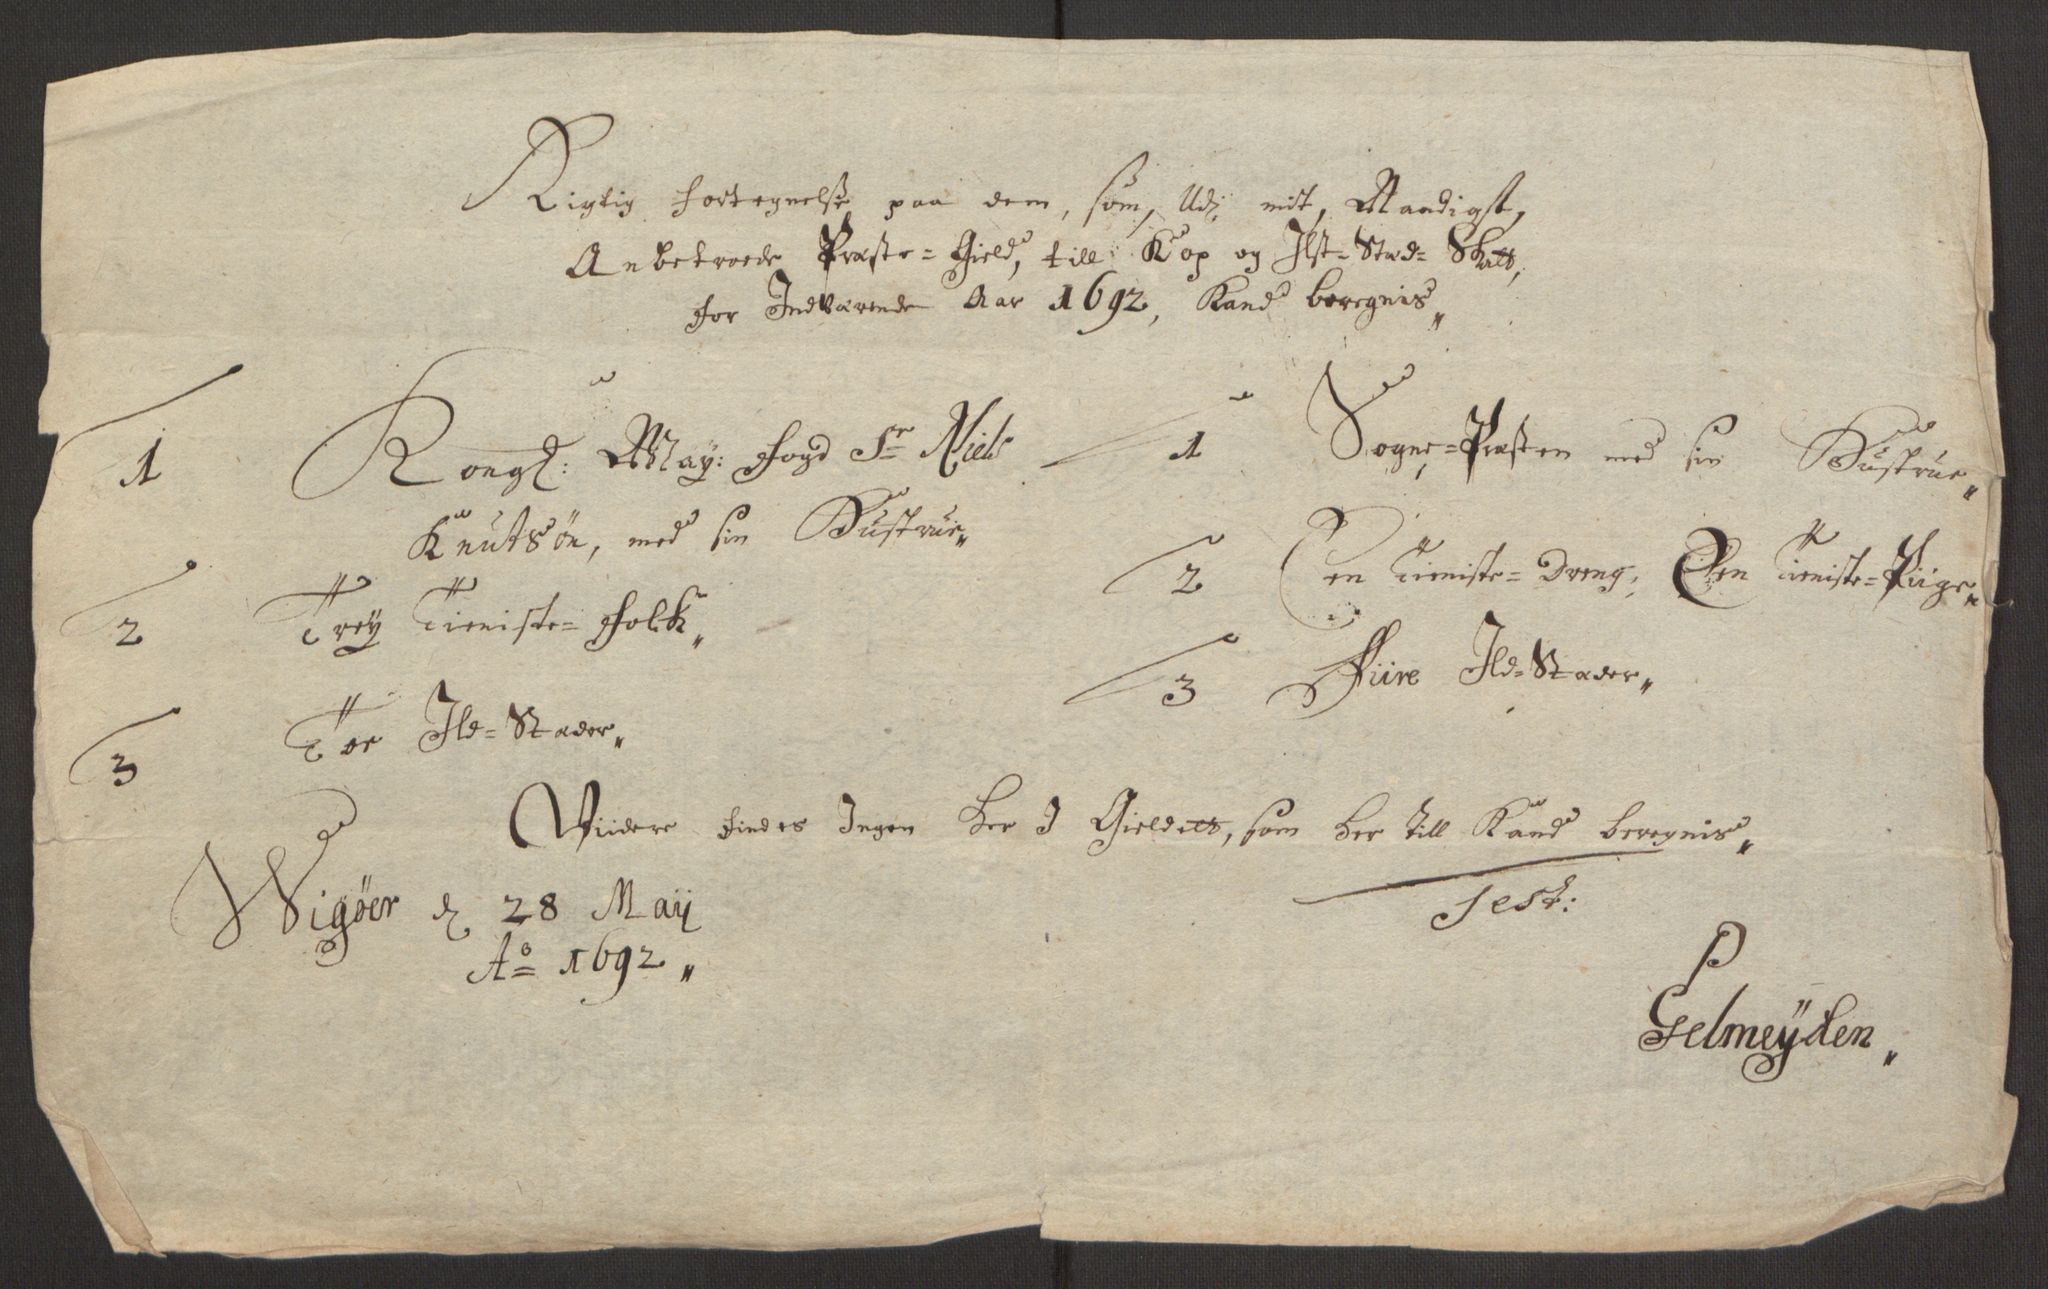 Rigtig fortegnelse paa dem, som, Udj mit, Naadigst,
Anbetroede Præste=Gield, till Kop og Ilst=Stæd=Skatt,
for Indværende Aar 1692, Kand beregnis„
1 Kongl: May: Fogd Sr Niels
Knutsøn, med sin Hustrue„
2 Trey Tieniste=Folck„
3 Toe Ild=Stæder„
1 Sogne=Præsten med sin Hustrue„
2 Een Tieniste=Dreng, Een Tieniste=Piige„
3 Fiire Ild=Stæder„
Viidere findes Ingen her I Gieldett, som her till Kand beregnis„
Test:
Wigøer d 28 Maij
Ao 1692„
P
Gelmeÿden„